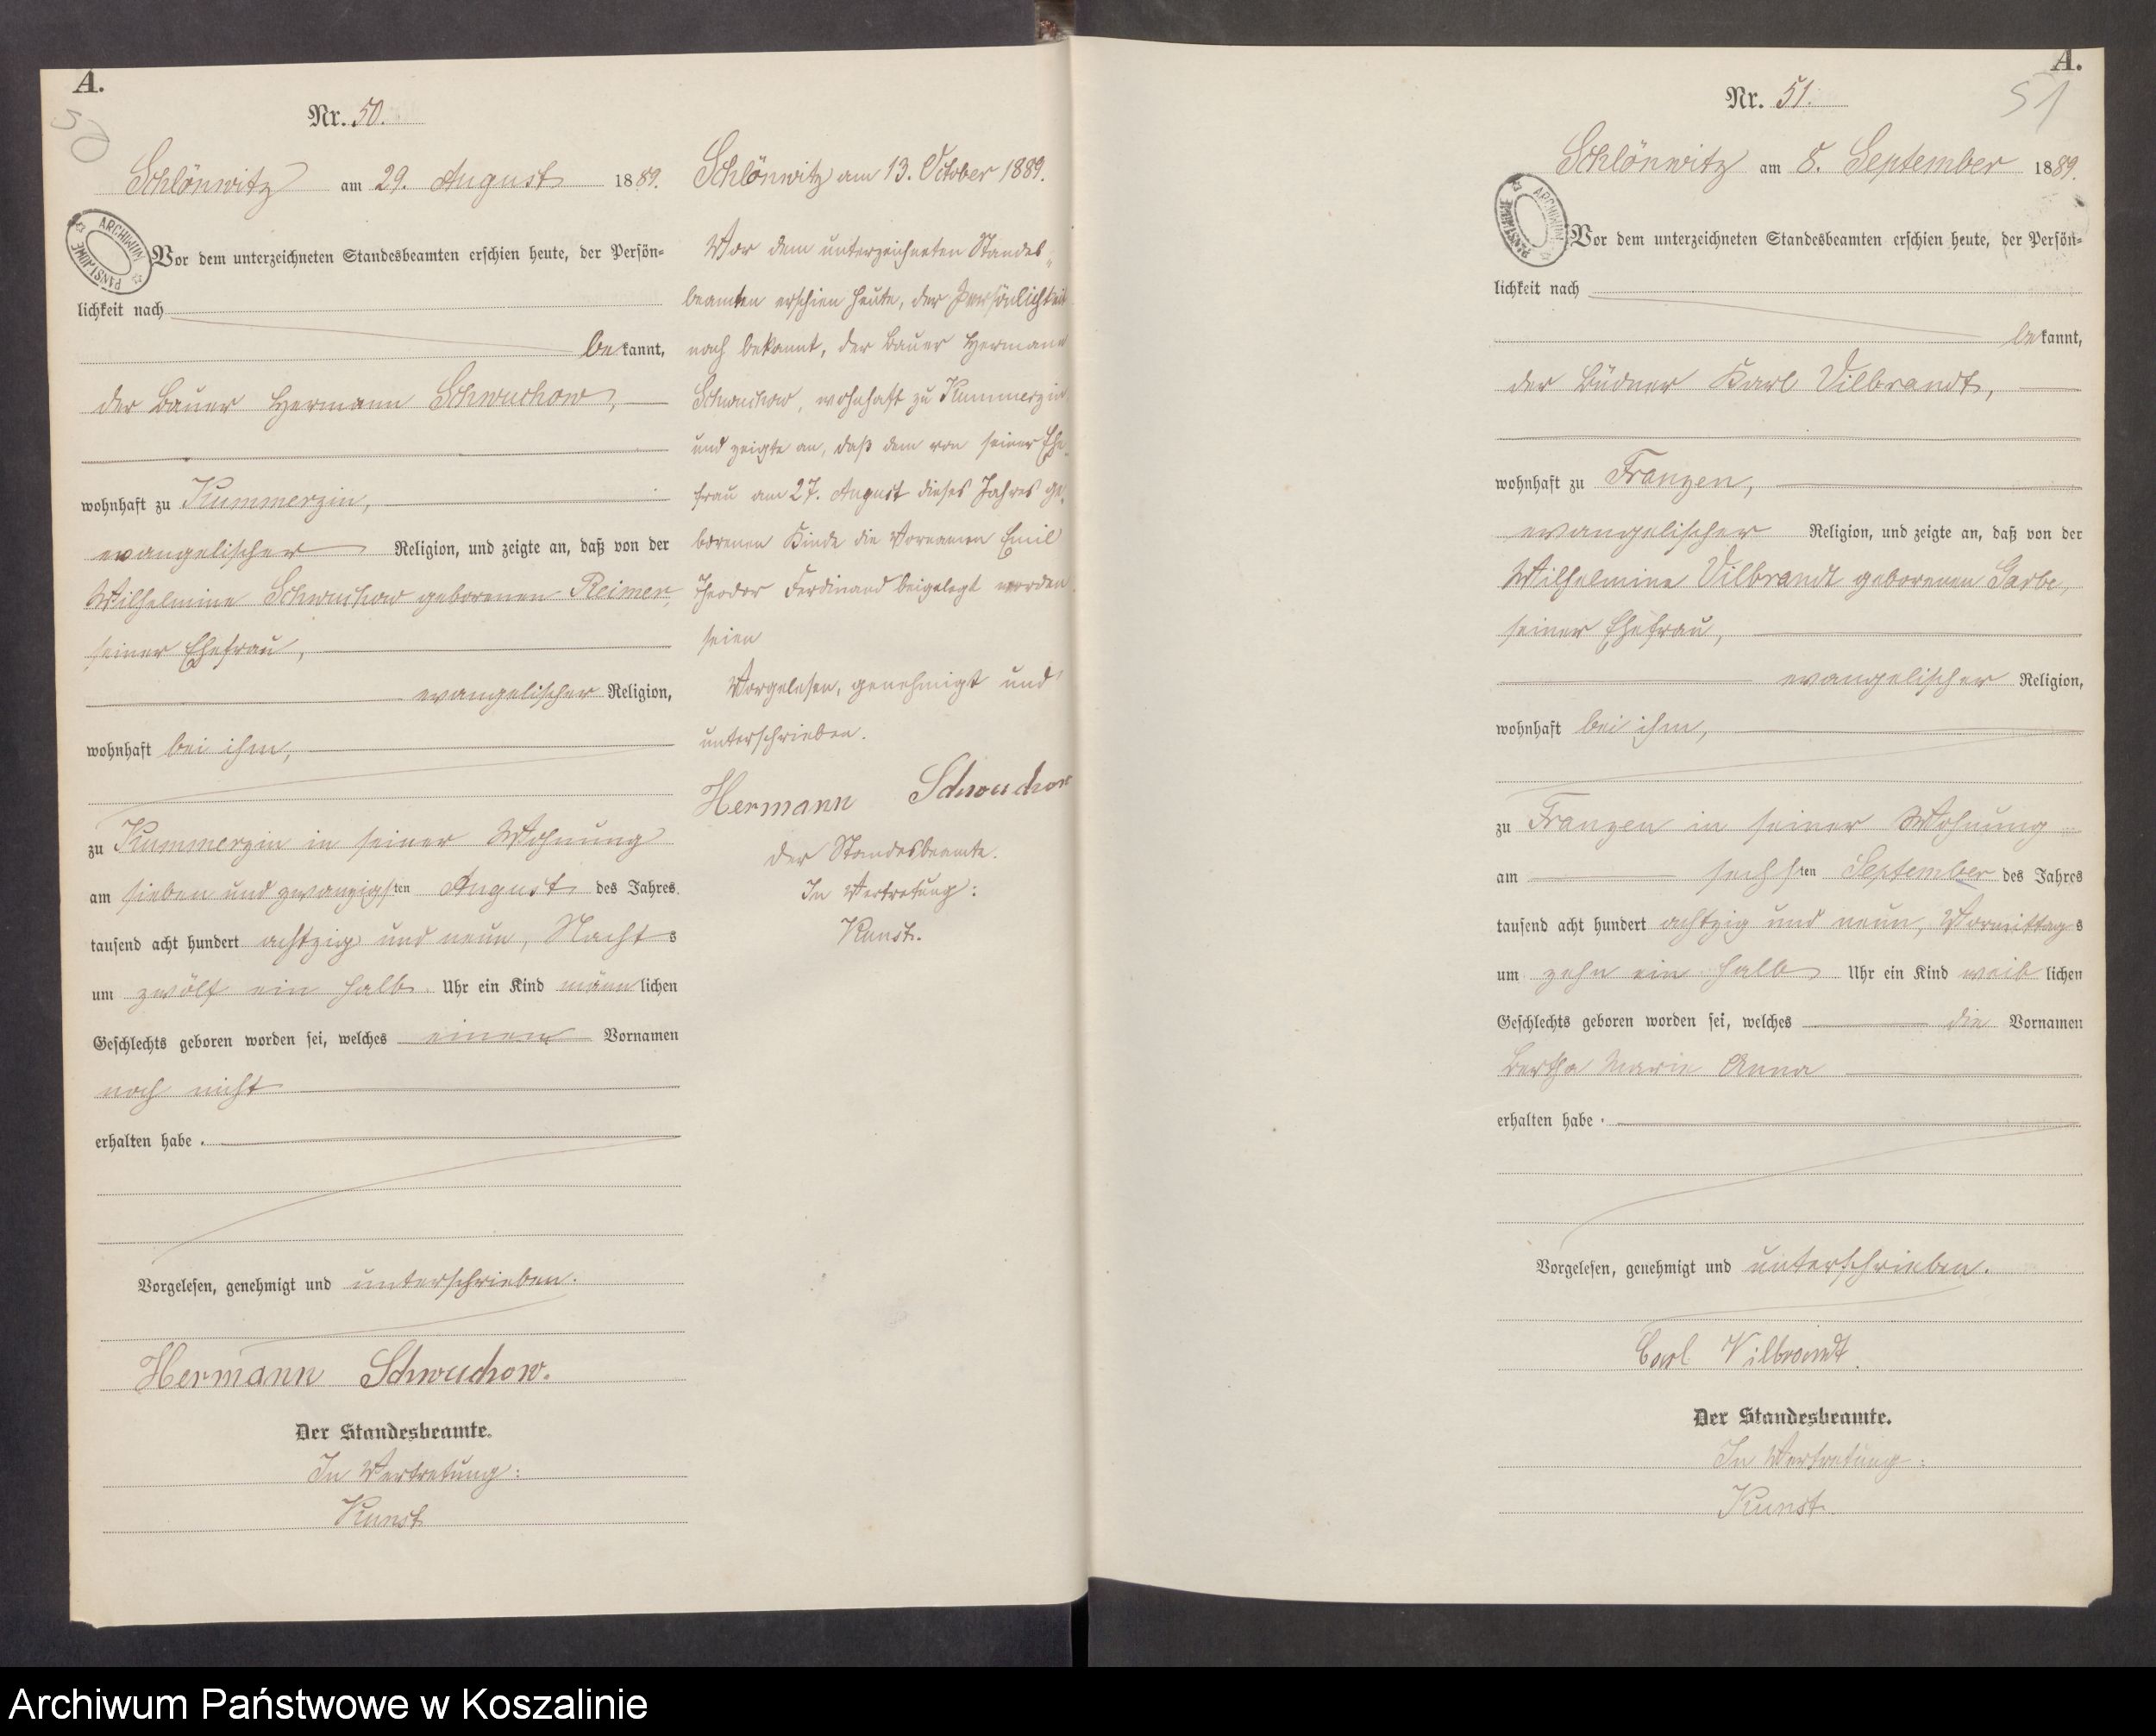 A.
50
Nr. 50.
Schlönwitz am 29. August 1889.
ARCHIWUM PAŃSTWOWE
Vor dem unterzeichneten Standesbeamten erschien heute, der Persön=
lichkeit nach
bekannt,
der Bauer Hermann Schwuchow,
wohnhaft zu Kummerzin,
evangelischer Religion, und zeigte an, daß von der
Wilhelmine Schwuchow geborenen Reimer,
seiner Ehefrau,
evangelischer Religion,
wohnhaft bei ihm,
zu Kummerzin in seiner Wohnung
am sieben und zwanzigsten August des Jahres
tausend acht hundert achtzig und neun, Nachts
um zwölf ein halb Uhr ein Kind männlichen
Geschlechts geboren worden sei, welches einen Vornamen
noch nicht
erhalten habe.
Vorgelesen, genehmigt und unterschrieben.
Hermann Schwuchow.
Der Standesbeamte.
In Vertretung:
Kunst
Schlönwitz am 13. October 1889.
Vor dem unterzeichneten Standes=
beamten erschien heute, der Persönlichkeit
nach bekannt, der Bauer Hermann
Schwuchow, wohnhaft zu Kummerzin
und zeigte an, daß dem von seiner Ehe=
frau am 27. August dieses Jahres ge=
borenen Kinde die Vornamen Emil
Theodor Ferdinand beigelegt worden
seien
Vorgelesen, genehmigt und
unterschrieben.
Hermann Schwuchow
Der Standesbeamte.
In Vertretung:
Kunst.
A.
51
Nr. 51.
Schlönwitz am 8. September 1889.
ARCHIWUM PAŃSTWOWE
Vor dem unterzeichneten Standesbeamten erschien heute, der Persön=
lichkeit nach
bekannt,
der Büdner Karl Vilbrandt,
wohnhaft zu Franzen,
evangelischer Religion, und zeigte an, daß von der
Wilhelmine Vilbrandt geborenen Garbe,
seiner Ehefrau,
evangelischer Religion,
wohnhaft bei ihm,
zu Franzen in seiner Wohnung
am sechsten September des Jahres
tausend acht hundert achtzig und neun, Vormittags
um zehn ein halb Uhr ein Kind weiblichen
Geschlechts geboren worden sei, welches die Vornamen
Bertha Marie Anna
erhalten habe.
Vorgelesen, genehmigt und unterschrieben.
Carl Vilbrandt.
Der Standesbeamte.
In Vertretung:
Kunst.
Archiwum Państwowe w Koszalinie